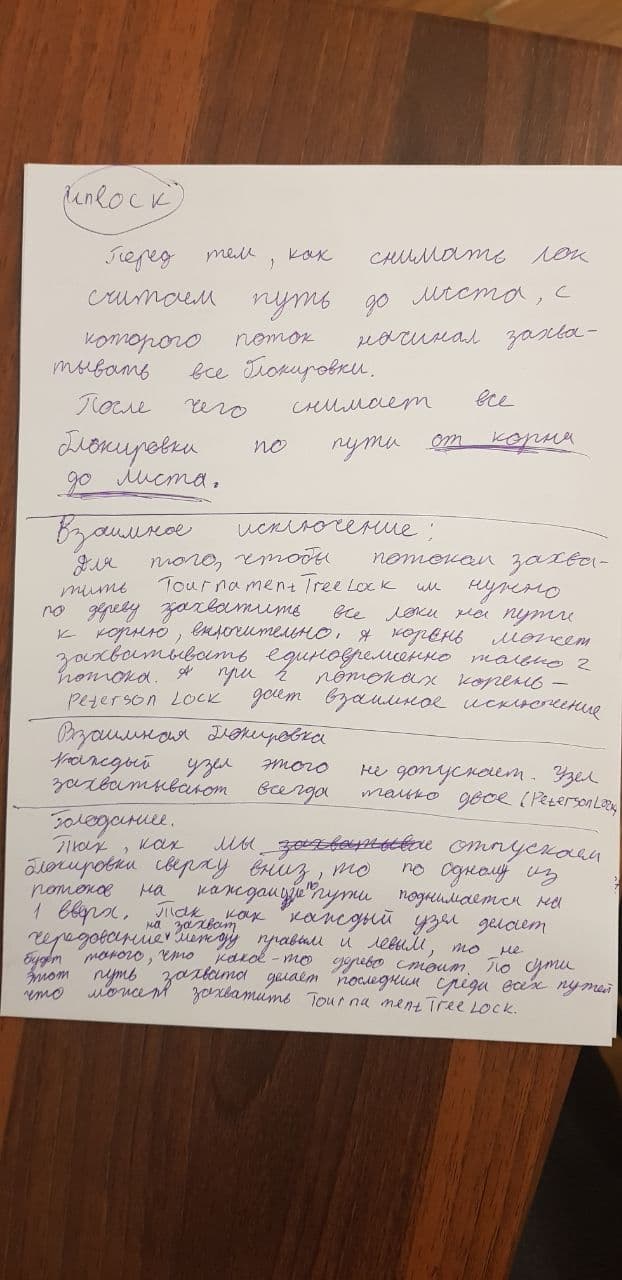 unlock
Перед тем, как снимать лок
считаем путь до листа, с
которого поток начинал захва-
тывать все блокировки.
После чего снимает все
блокировки по пути от корня
до листа.
Взаимное исключение:
Для того, чтобы потокам захва-
тить TournamentTreeLock им нужно
по дереву захватить все локи на пути
к корню, включительно. А корень может
захватывать единовременно только 2
потока. А при 2 потоках корень-
Peterson Lock дает взаимное исключение
Взаимная блокировка
Каждый узел этого не допускает. Узел
захватывают всегда только двое (PetersonLock
Голодание.
Так, как мы отпускаем
блокировки сверху вниз, то по одному из
потоков на каждом пути поднимается на
1 вверх. Так как каждый узел делает
чередование на захват между правым и левым, то не
будет такого, что какое-то дерево стоит. По сути
этот путь захвата делает последним среди всех путей
что может захватить TournamentTreeLock.